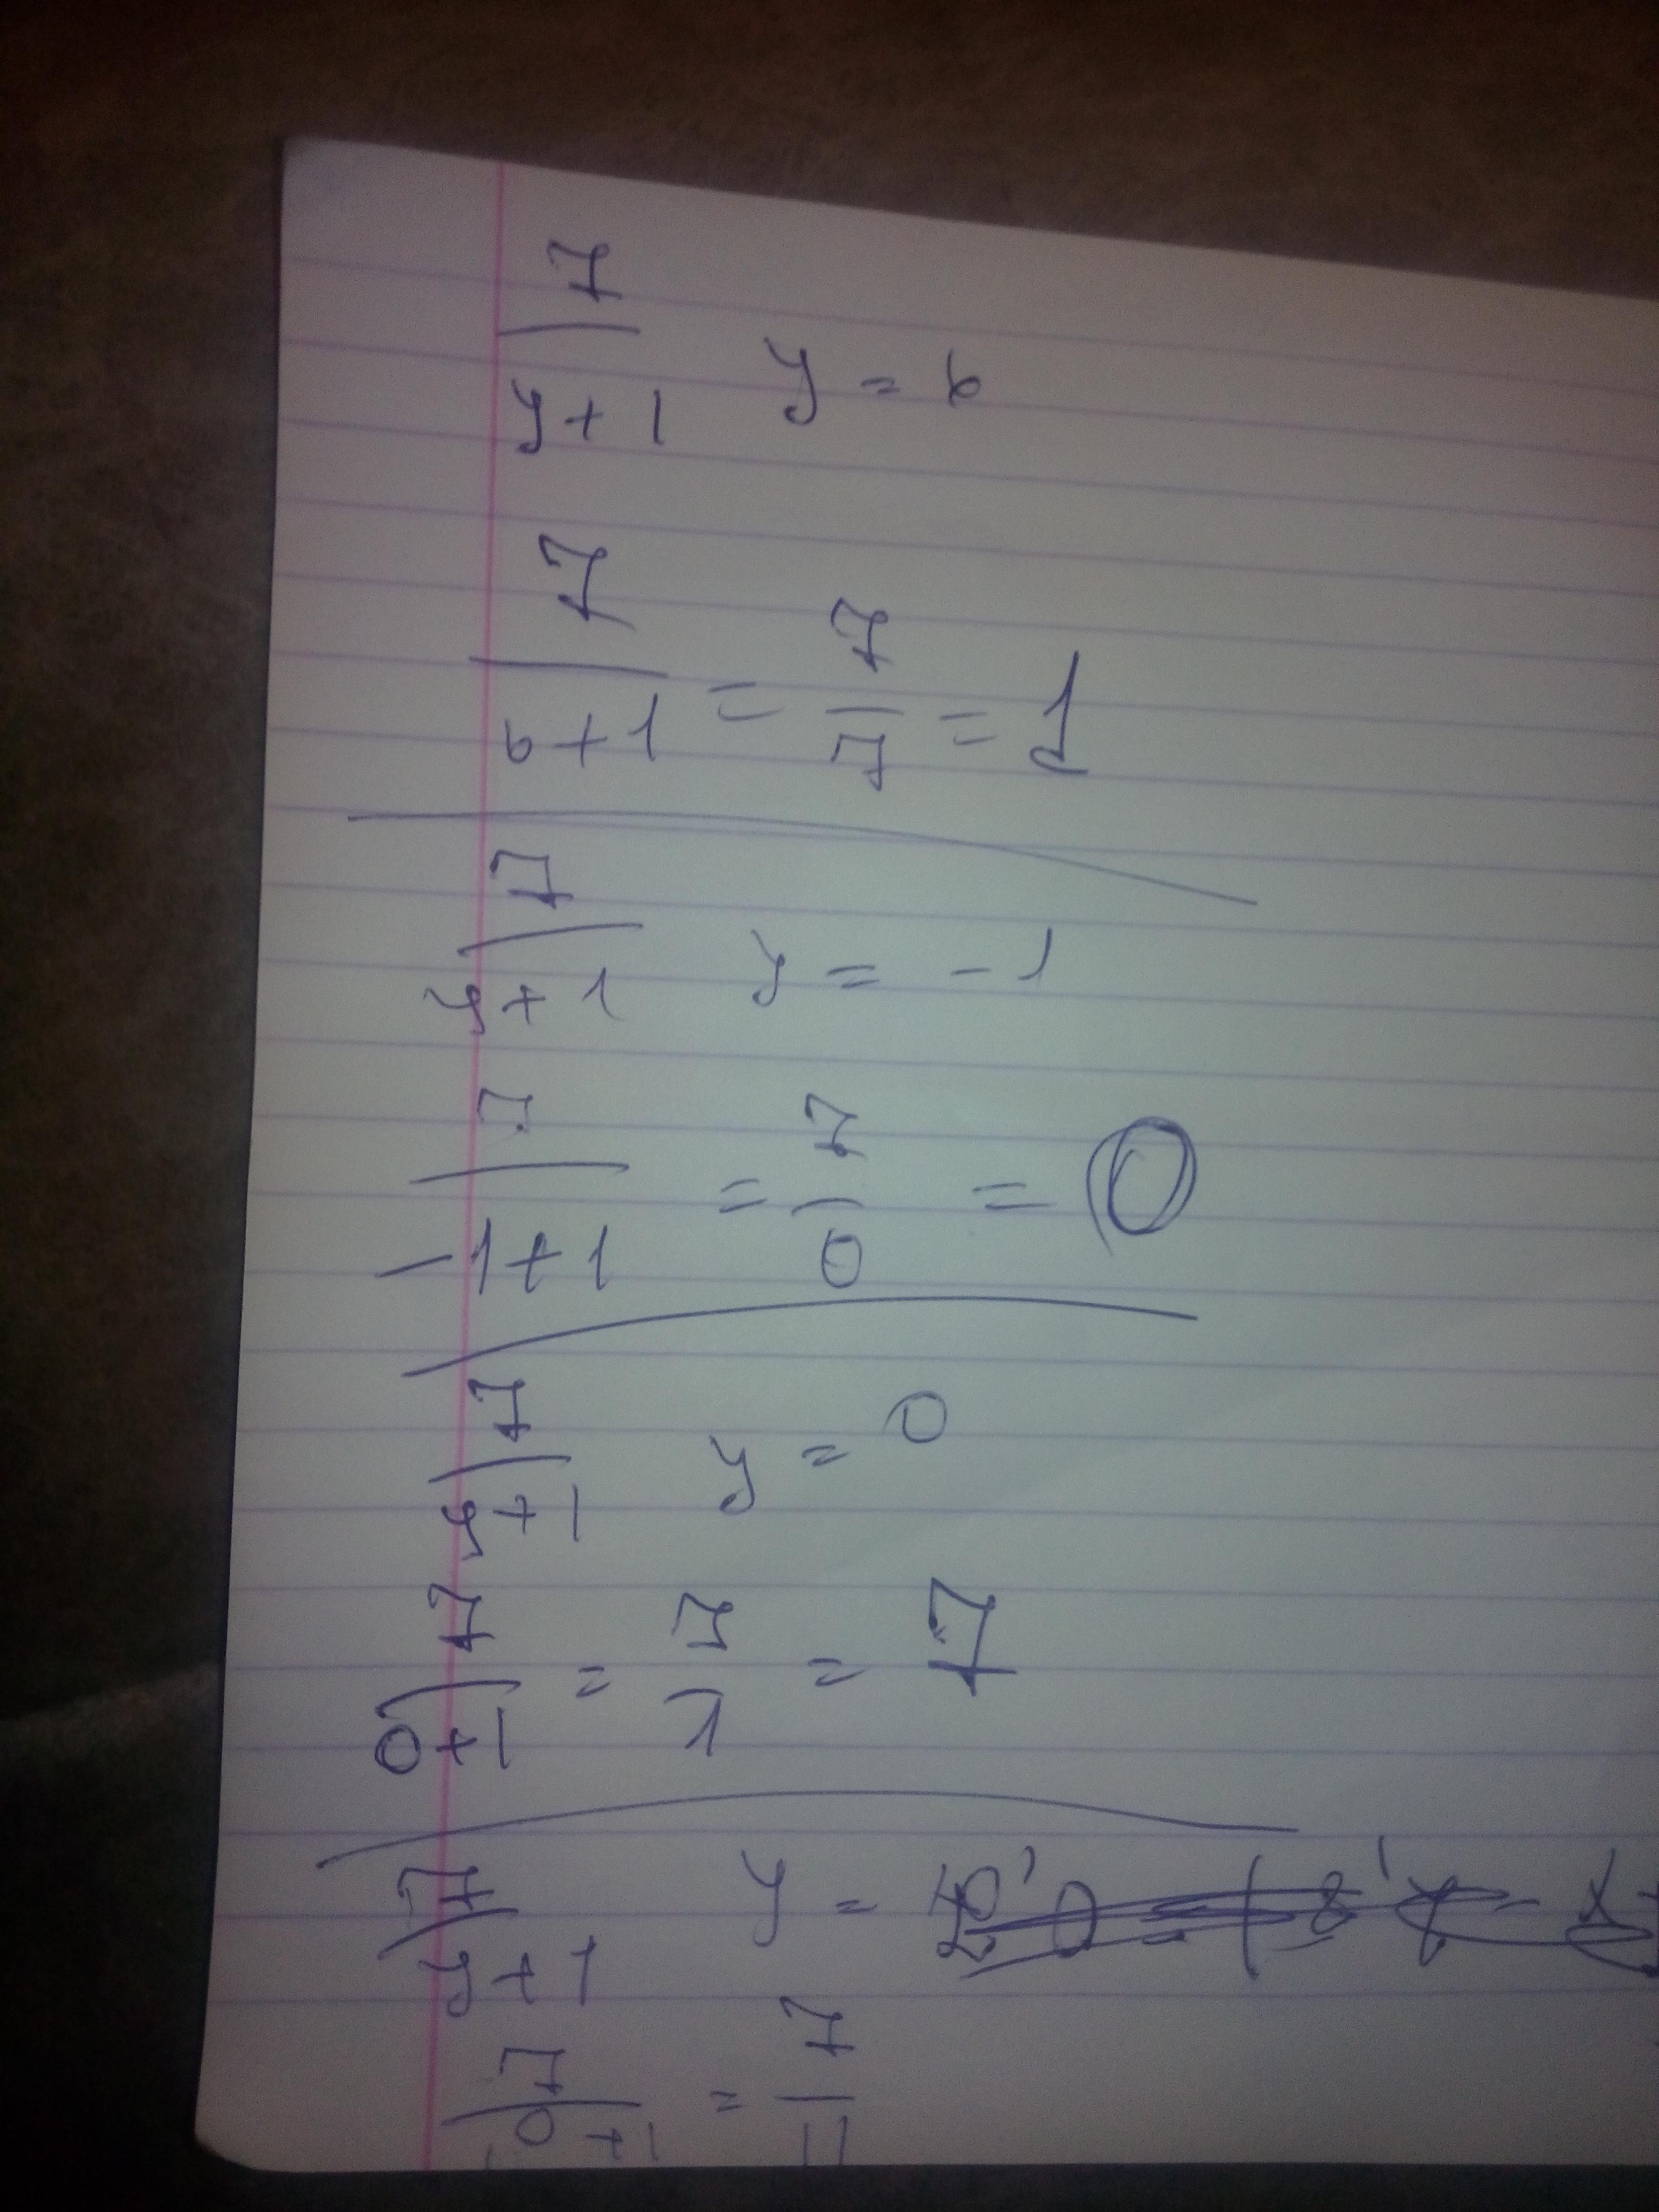 7/(y+1) y = 6
7/(6+1) = 7/7 = 1
7/(y+1) y = -1
7/(-1+1) = 7/0 = 0
7/(y+1) y = 0
7/(0+1) = 7/1 = 7
7/(y+1) y =
= 7/11